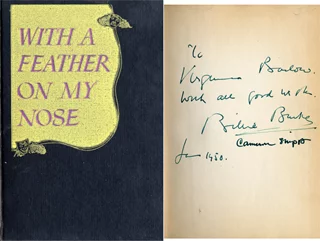 WITH A
FEATHER
ON MY
NOSE
To
Virginia Barlow.
With all good wishes.
Billie Burke
Cameron Shipp
Jan 1950.